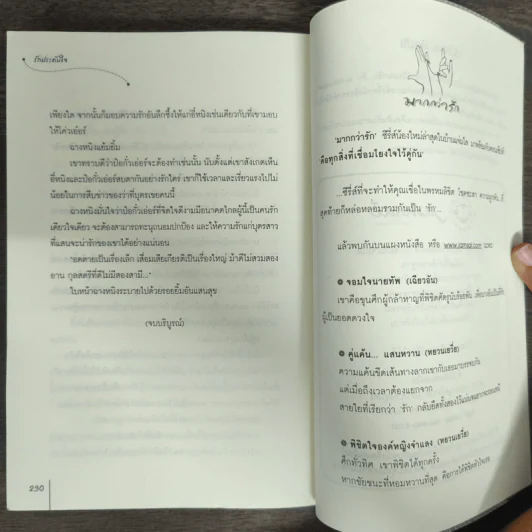 รักประดับใจ
เพียงใด จากนั้นก็มอบความรักอันลึกซึ้งให้แก่อี้หนิงเช่นเดียวกับที่เขามอบ
ให้โค่วเย่อร์
ฉางหนิงแย้มยิ้ม
เขาทราบดีว่าป๋อกั๋วเย่อร์จะต้องทำเช่นนั้น นับตั้งแต่เขาสังเกตเห็น
อี้หนิงและป๋อกั๋วเย่อร์สบตากันอย่างรักใคร่ เขาก็ใช้เวลาและเรี่ยวแรงไปไม่
น้อยในการสืบข่าวของว่าที่บุตรเขยคนนี้
ฉางหนิงมั่นใจว่าป๋อกั๋วเย่อร์ที่จิตใจดีงามมีอนาคตไกลผู้นี้เป็นคนรัก
เดียวใจเดียว จะต้องสามารถทะนุถนอมปกป้อง และให้ความรักแก่บุตรสาว
ที่แสนจะน่ารักของเขาได้อย่างแน่นอน
"อดตายเป็นเรื่องเล็ก เสื่อมเสียเกียรติเป็นเรื่องใหญ่ ม้าดีไม่สวมสอง
อาน กุลสตรีที่ดีไม่มีสองสามี..."
ใบหน้าฉางหนิงระบายไปด้วยรอยยิ้มอันแสนสุข
(จบบริบูรณ์)
230
มากกว่ารัก
'มากกว่ารัก' ซีรี่ส์น้องใหม่ล่าสุดในบ้านแจ่มใส
คือทุกสิ่งที่เชื่อมโยงใจไว้คู่กัน
...ซีรี่ส์ที่จะทำให้คุณเชื่อในพรหมลิขิต
สุดท้ายก็หล่อหลอมรวมกันเป็น 'รัก'
แล้วพบกันบนแผงหนังสือ หรือ www.jamsai.com
จอมใจนายทัพ (เฉียวอัน)
เขาคือขุนศึกผู้กล้าหาญที่พิชิตศัตรูนับร้อยพัน
ผู้เป็นยอดดวงใจ
คู่แค้น... แสนหวาน (หยวนเยวี่ย)
ความแค้นขีดเส้นทางลากเขากับเธอมาบรรจบกัน
แต่เมื่อถึงเวลาต้องแยกจาก
สายใยที่เรียกว่า 'รัก'
พิชิตใจองค์หญิงจำแลง (หยวนเยวี่ย)
ศึกทั่วทิศ เขาพิชิตได้ทุกครั้ง
หากชัยชนะที่หอมหวานที่สุด